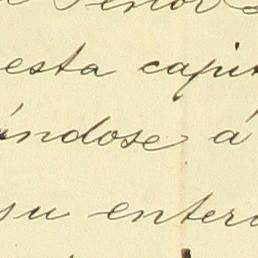 Señor
esta capit
ándose á
su enter